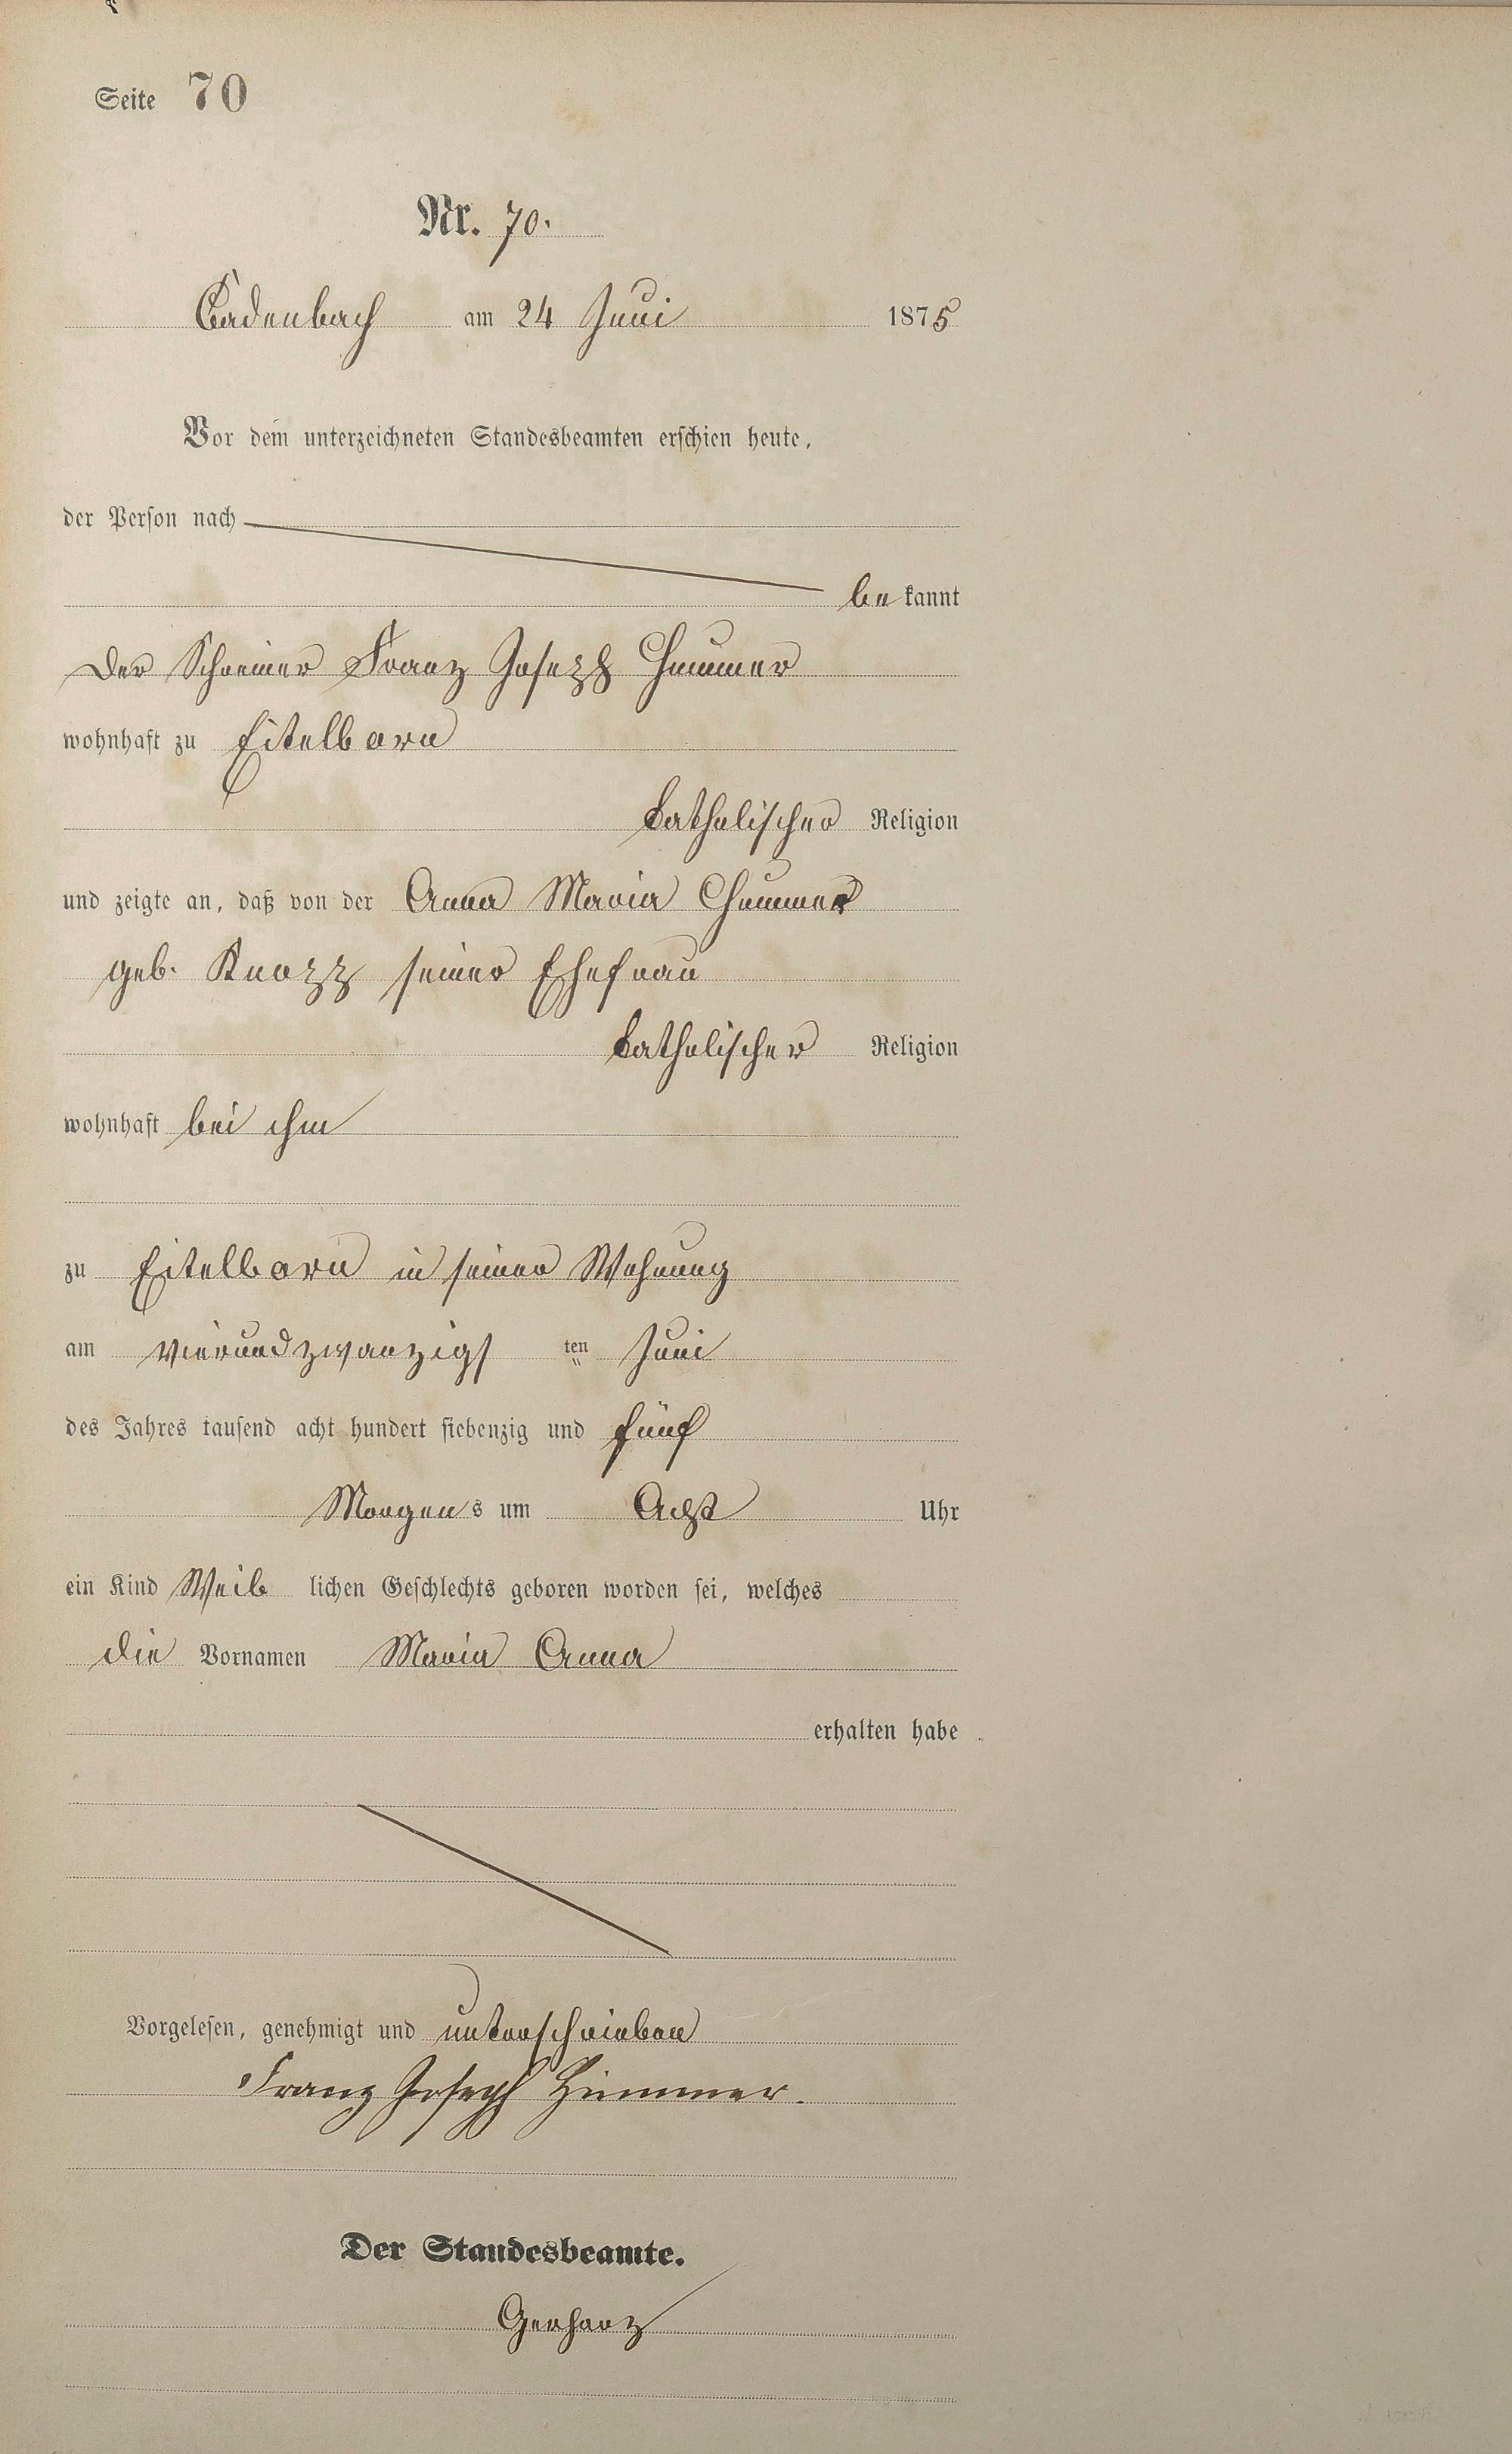 Seite 70
Nr. 70.
Cadenbach am 24 Juni 1875
Vor dem unterzeichneten Standesbeamten erschien heute,
der Person nach
be kannt
Der Schreiner Franz Joseph Hümmer
wohnhaft zu Eitelborn
katholischer Religion
und zeigte an, daß von der Anna Maria Hümmer
geb. Knopp seiner Ehefrau
katholischer Religion
wohnhaft bei ihm
zu Eitelborn in seiner Wohnung
am vierundzwanzigs ten Juni
des Jahres tausend acht hundert siebenzig und fünf
Morgens um Acht Uhr
ein Kind Weib lichen Geschlechts geboren worden sei, welches
die Vornamen Maria Anna
erhalten habe
Vorgelesen, genehmigt und unterschrieben
Franz Joseph Hümmer.
Der Standesbeamte.
Gerharz